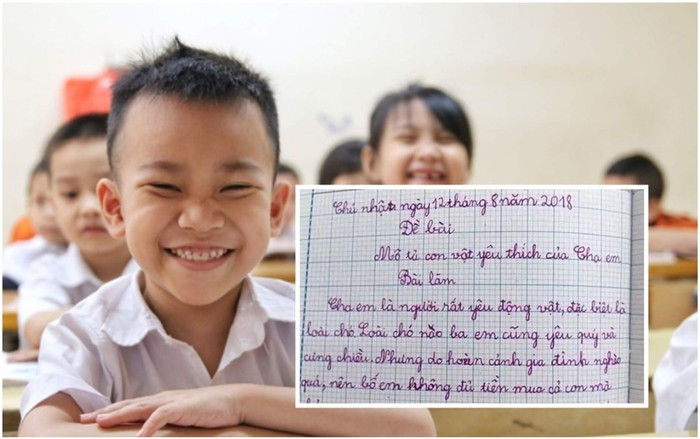 Chủ nhật ngày 12 tháng 8 năm 2018
Đề bài
Mô tả con vật yêu thích của Cha em
Bài làm
Cha em là người rất yêu động vật, đặc biệt là
loài chó. Loài chó nào ba em cũng yêu quý và
cưng chiều. Nhưng do hoàn cảnh gia đình nghèo
quá, nên bố em không đủ tiền mua cả con mà